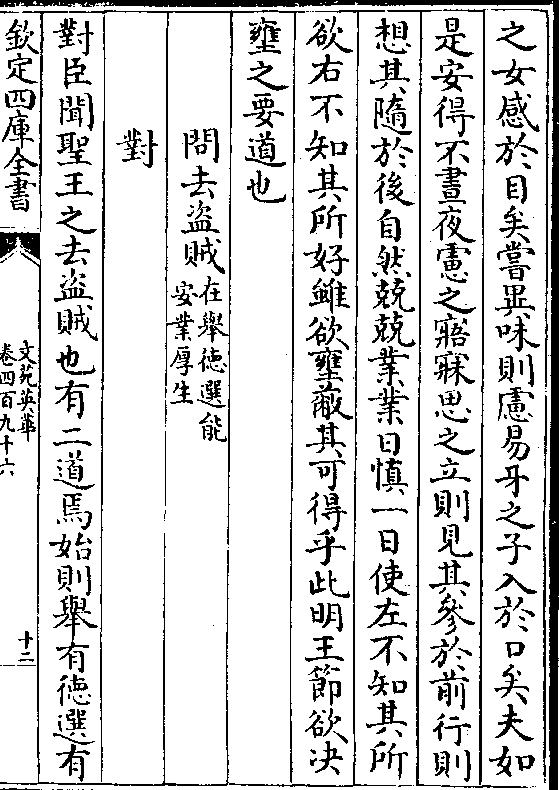 之女感於目矣嘗異味則慮易牙之子入於口矣夫如
是安得不晝夜慮之寤寐思之立則見其參於前行則
想其隨於後自然兢兢業業日慎一日使左不知其所
欲右不知其所好雖欲壅蔽其可得乎此明王節欲决
壅之要道也
問去盜賊
在舉徳選能
安業厚生
對
對臣聞聖王之去盜賊也有二道焉始則舉有徳選有
欽定四庫全書
文苑英華
卷四百九十六
十二